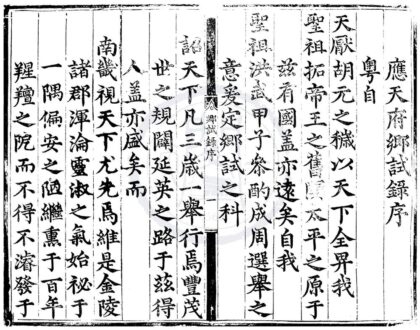 應天府鄉試錄序
粵自
天厭胡元之穢以天下全昇我
聖祖拓帝王之舊
太平之原于
茲有國蓋亦遠矣自我
聖祖洪武甲子參酌成周選舉之
意爰定鄉試之科
鄉試錄序
一
詔天下凡三歲一舉行焉豐茂
世之規闢延英之路于茲得
人蓋亦盛矣而
南畿視天下尤先焉維是金陵
諸郡渾淪靈淑之氣始祕于
一隅偏安之陋繼熏于百年
羶之
而不得不濬發于